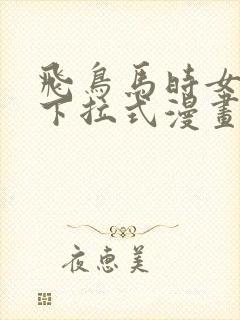 飛鳥馬時女
下拉式漫畫
夜惠美